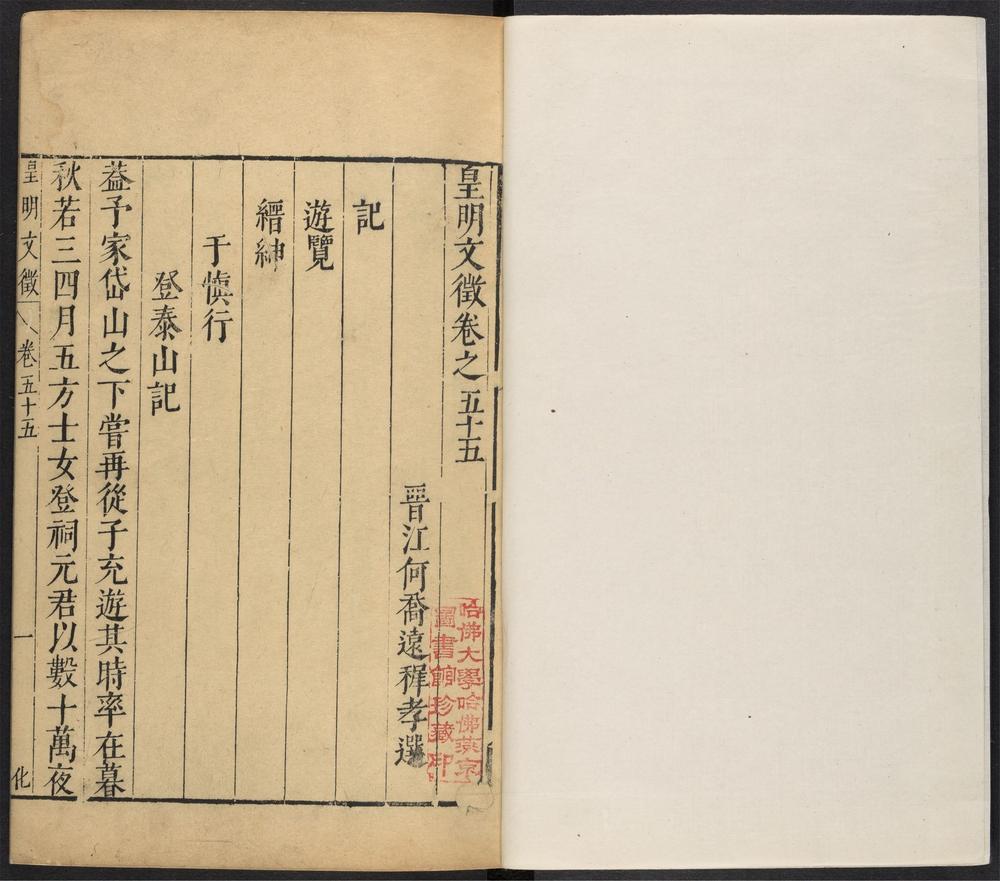 皇明文徵卷之五十五
晉江何喬遠穉孝選
記
遊覽
縉紳
于慎行
登泰山記
葢予家岱山之下嘗再從子充遊其時率在暮
秋若三四月五方士女登祠元君以數十萬夜
皇明文徵 卷五十五 一 化
哈佛大學哈佛燕京
圖書館珍藏印